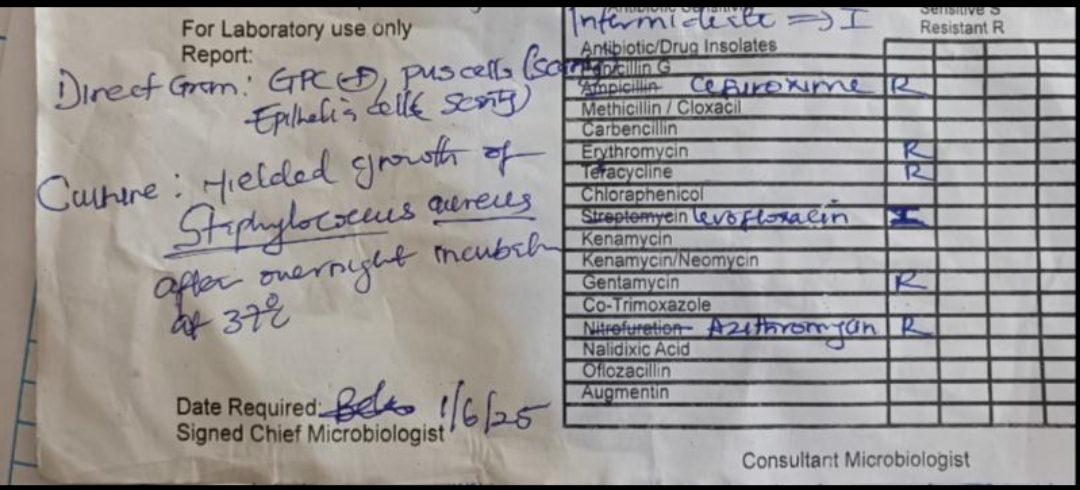 For Laboratory use only
Report:
Direct Gram: GPC ⊕, pus cells
Epithelia cells
Culture: Yielded growth of
Staphylococcus aureus
after overnight
at 37°C
Date Required: 1/6/25
Signed Chief Microbiologist
Sensitive S
Intermideate => I Resistant R
Antibiotic/Drug Insolates
Penicillin G
Ampicillin Cefuroxime R
Methicillin / Cloxacil
Carbencillin
Erythromycin R
Tetacycline R
Chloraphenicol
Streptomyein levofloxacin I
Kenamycin
Kenamycin/Neomycin
Gentamycin R
Co-Trimoxazole
Nitrofuretion Azithromycin R
Nalidixic Acid
Oflozacillin
Augmentin
Consultant Microbiologist